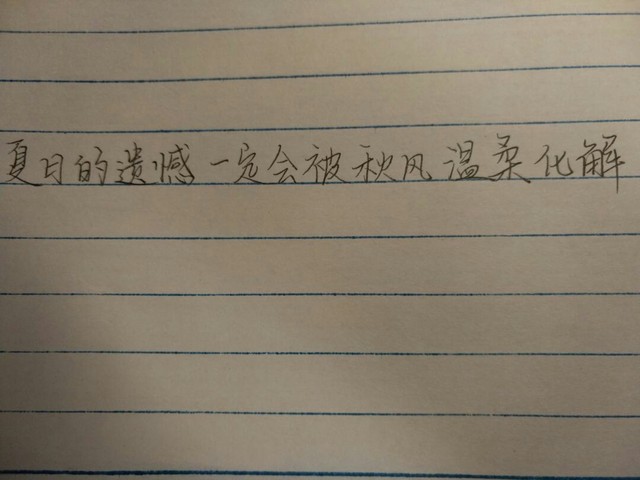 夏日的遗憾一定会被秋风温柔化解